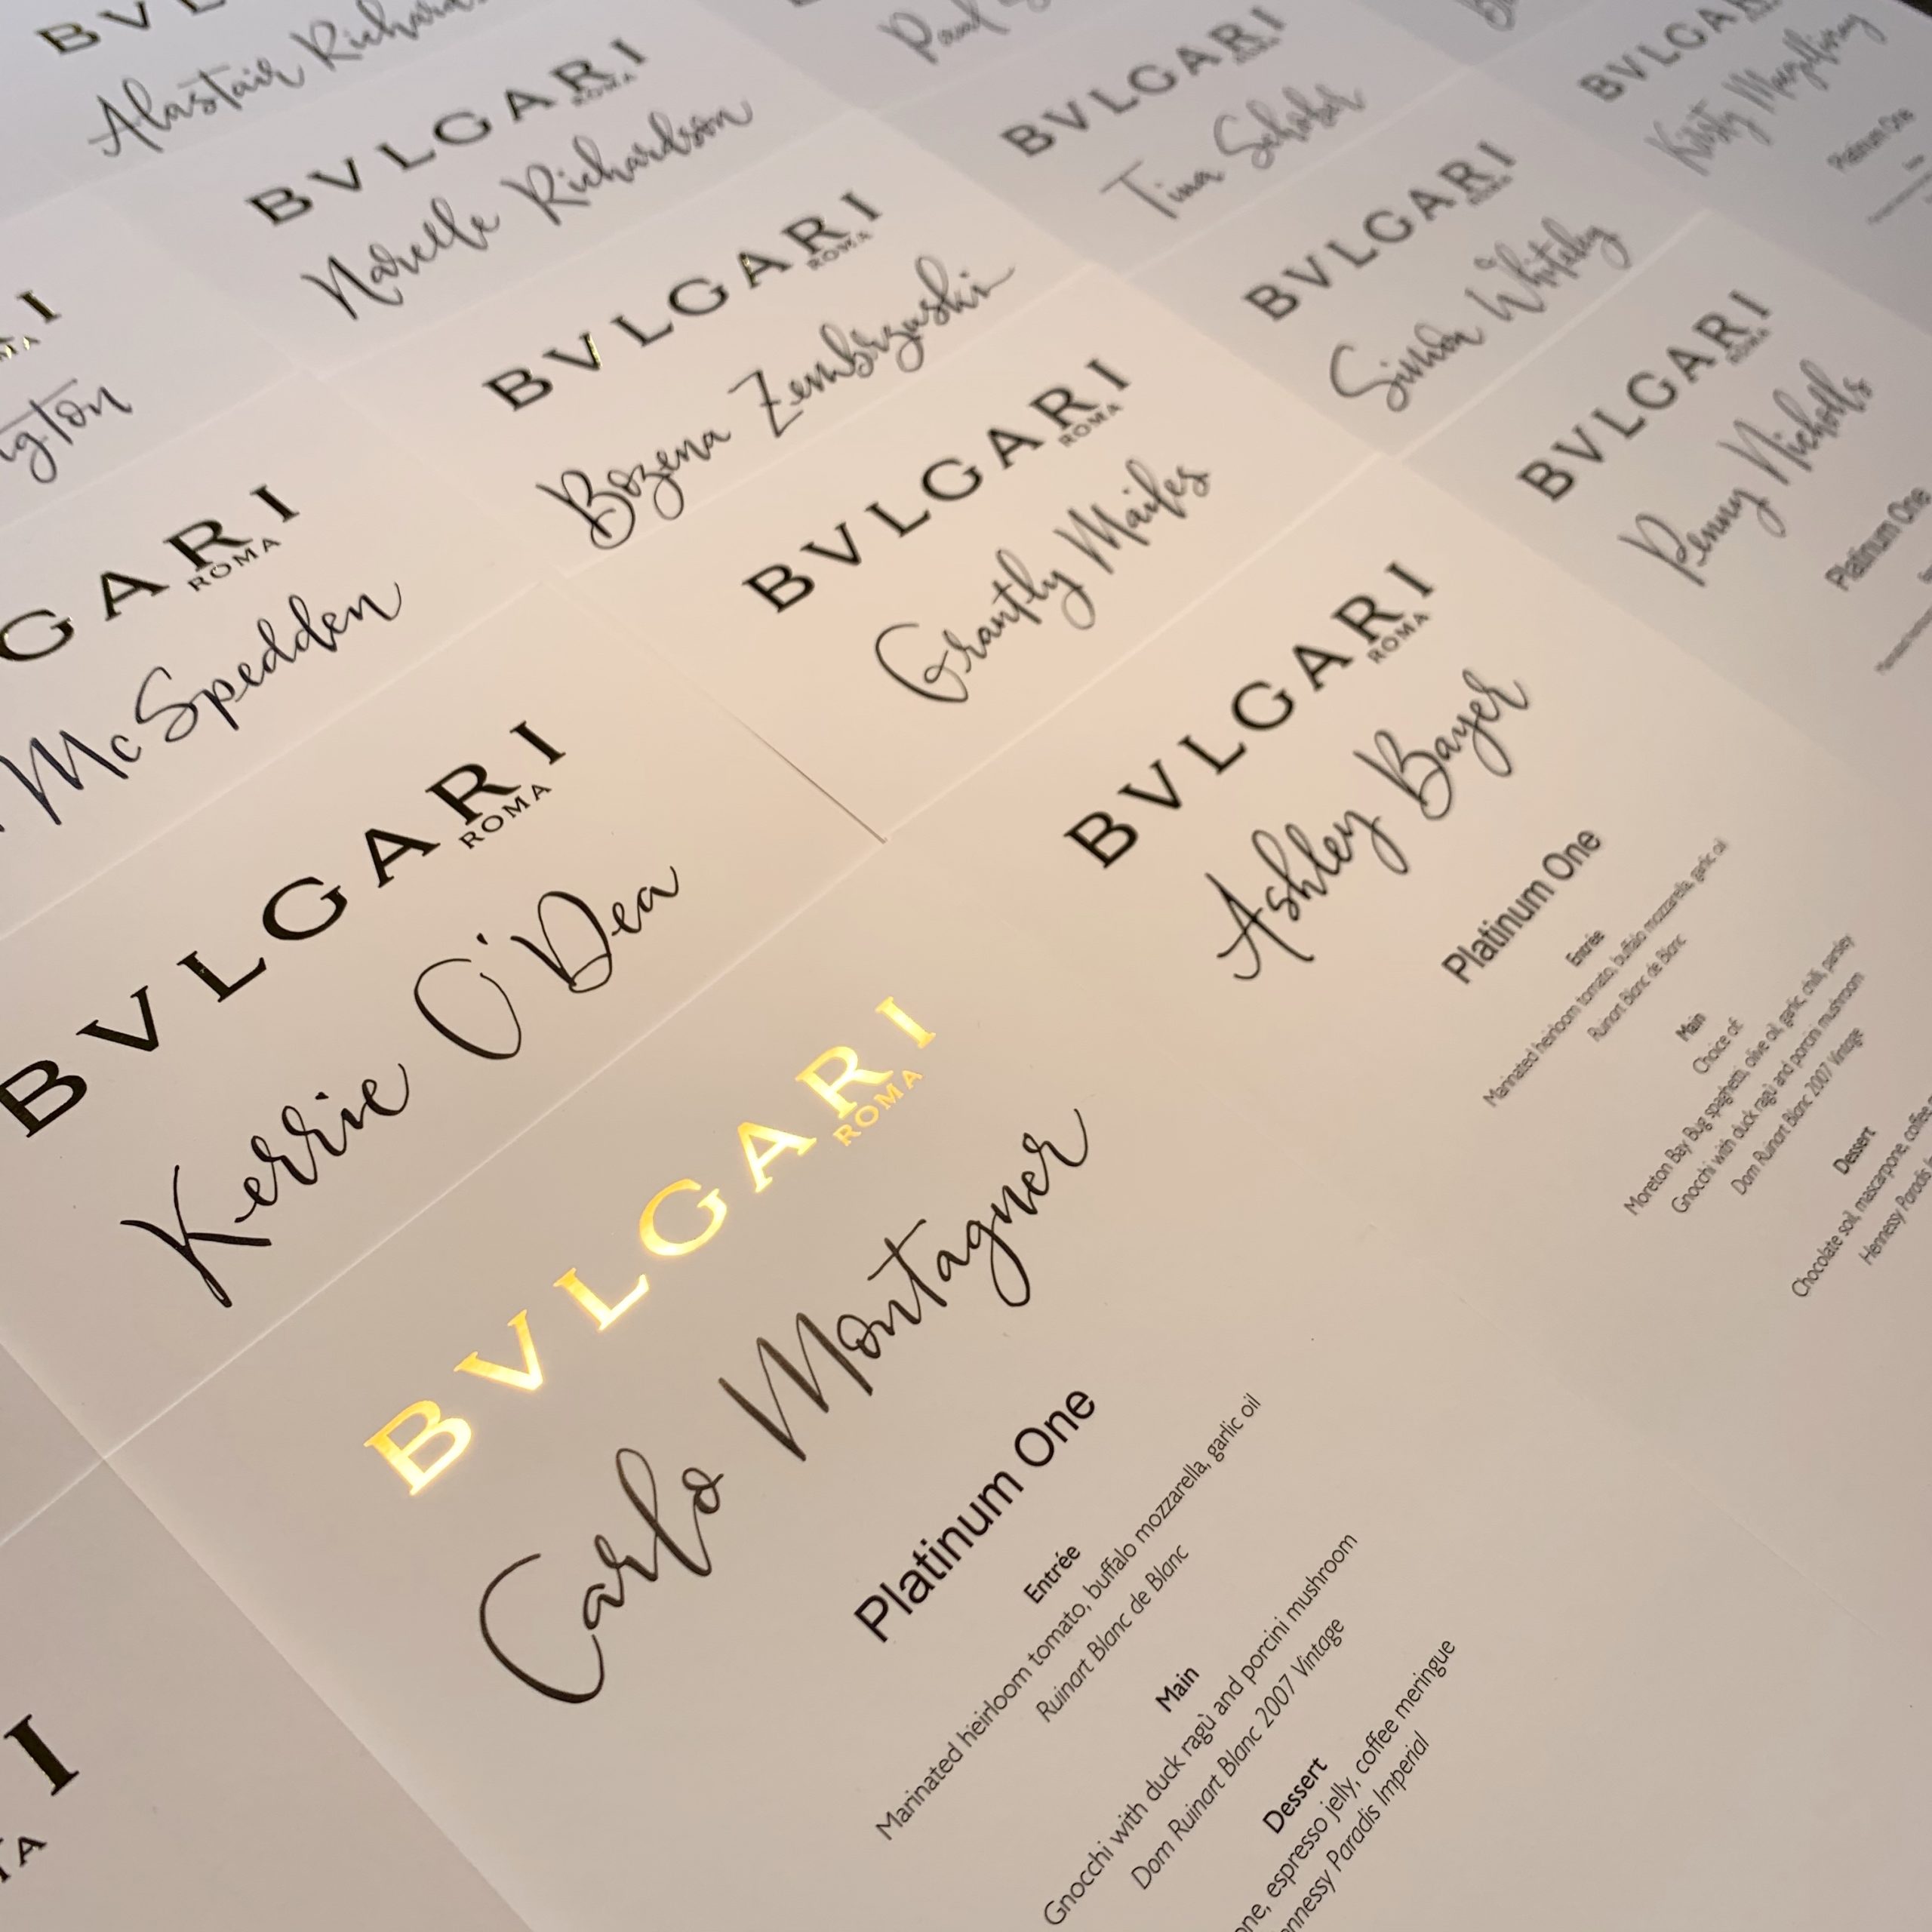 BVL
Alastair
BVLGARI
ROMA
Narelle Richardson
BVLGARI
ROMA
Bozena Zembrzuski
BVLGARI
ROMA
Grantly Mailes
BVLGARI
ROMA
Ashley Bayer
Platinum One
Entrée
Marinated heirloom tomato, buffalo mozzarella, garlic oil
Ruinart Blanc de Blanc
Main
Choice of:
Moreton Bay Bug spaghetti, olive oil, garlic, chilli, parsley
Gnocchi with duck ragù and porcini mushroom
Dom Ruinart Blanc 2007 Vintage
Dessert
Chocolate soil, mascarpone, coffee
Hennessy Paradis
Paul
BVLGARI
ROMA
Tina Schober
BVLGARI
ROMA
Simon Whiteley
BVLGARI
ROMA
Penny Nicholls
Platinum One
BVLGARI
Kristy
Platinum One
I
gton
GARI
ROMA
McSpedden
BVLGARI
ROMA
Kerrie O'Dea
BVLGARI
ROMA
Carlo Montagner
Platinum One
Entrée
Marinated heirloom tomato, buffalo mozzarella, garlic oil
Ruinart Blanc de Blanc
Main
Gnocchi with duck ragù and porcini mushroom
Dom Ruinart Blanc 2007 Vintage
Dessert
one, espresso jelly, coffee meringue
nnessy Paradis Imperial
I
A